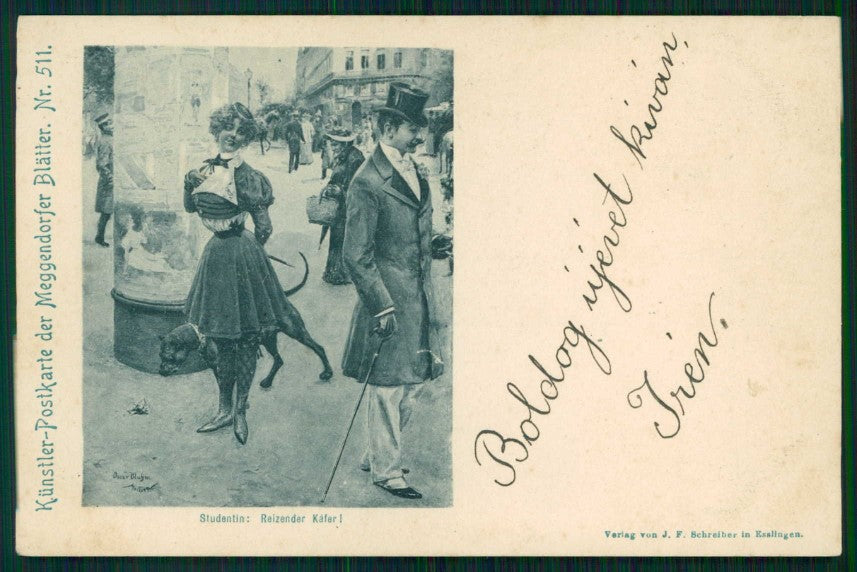 Künstler-Postkarte der Meggendorfer Blätter. Nr. 511.
Studentin: Reizender Käfer!
Boldog újévet kíván,
Irén.
Verlag von J. F. Schreiber in Esslingen.